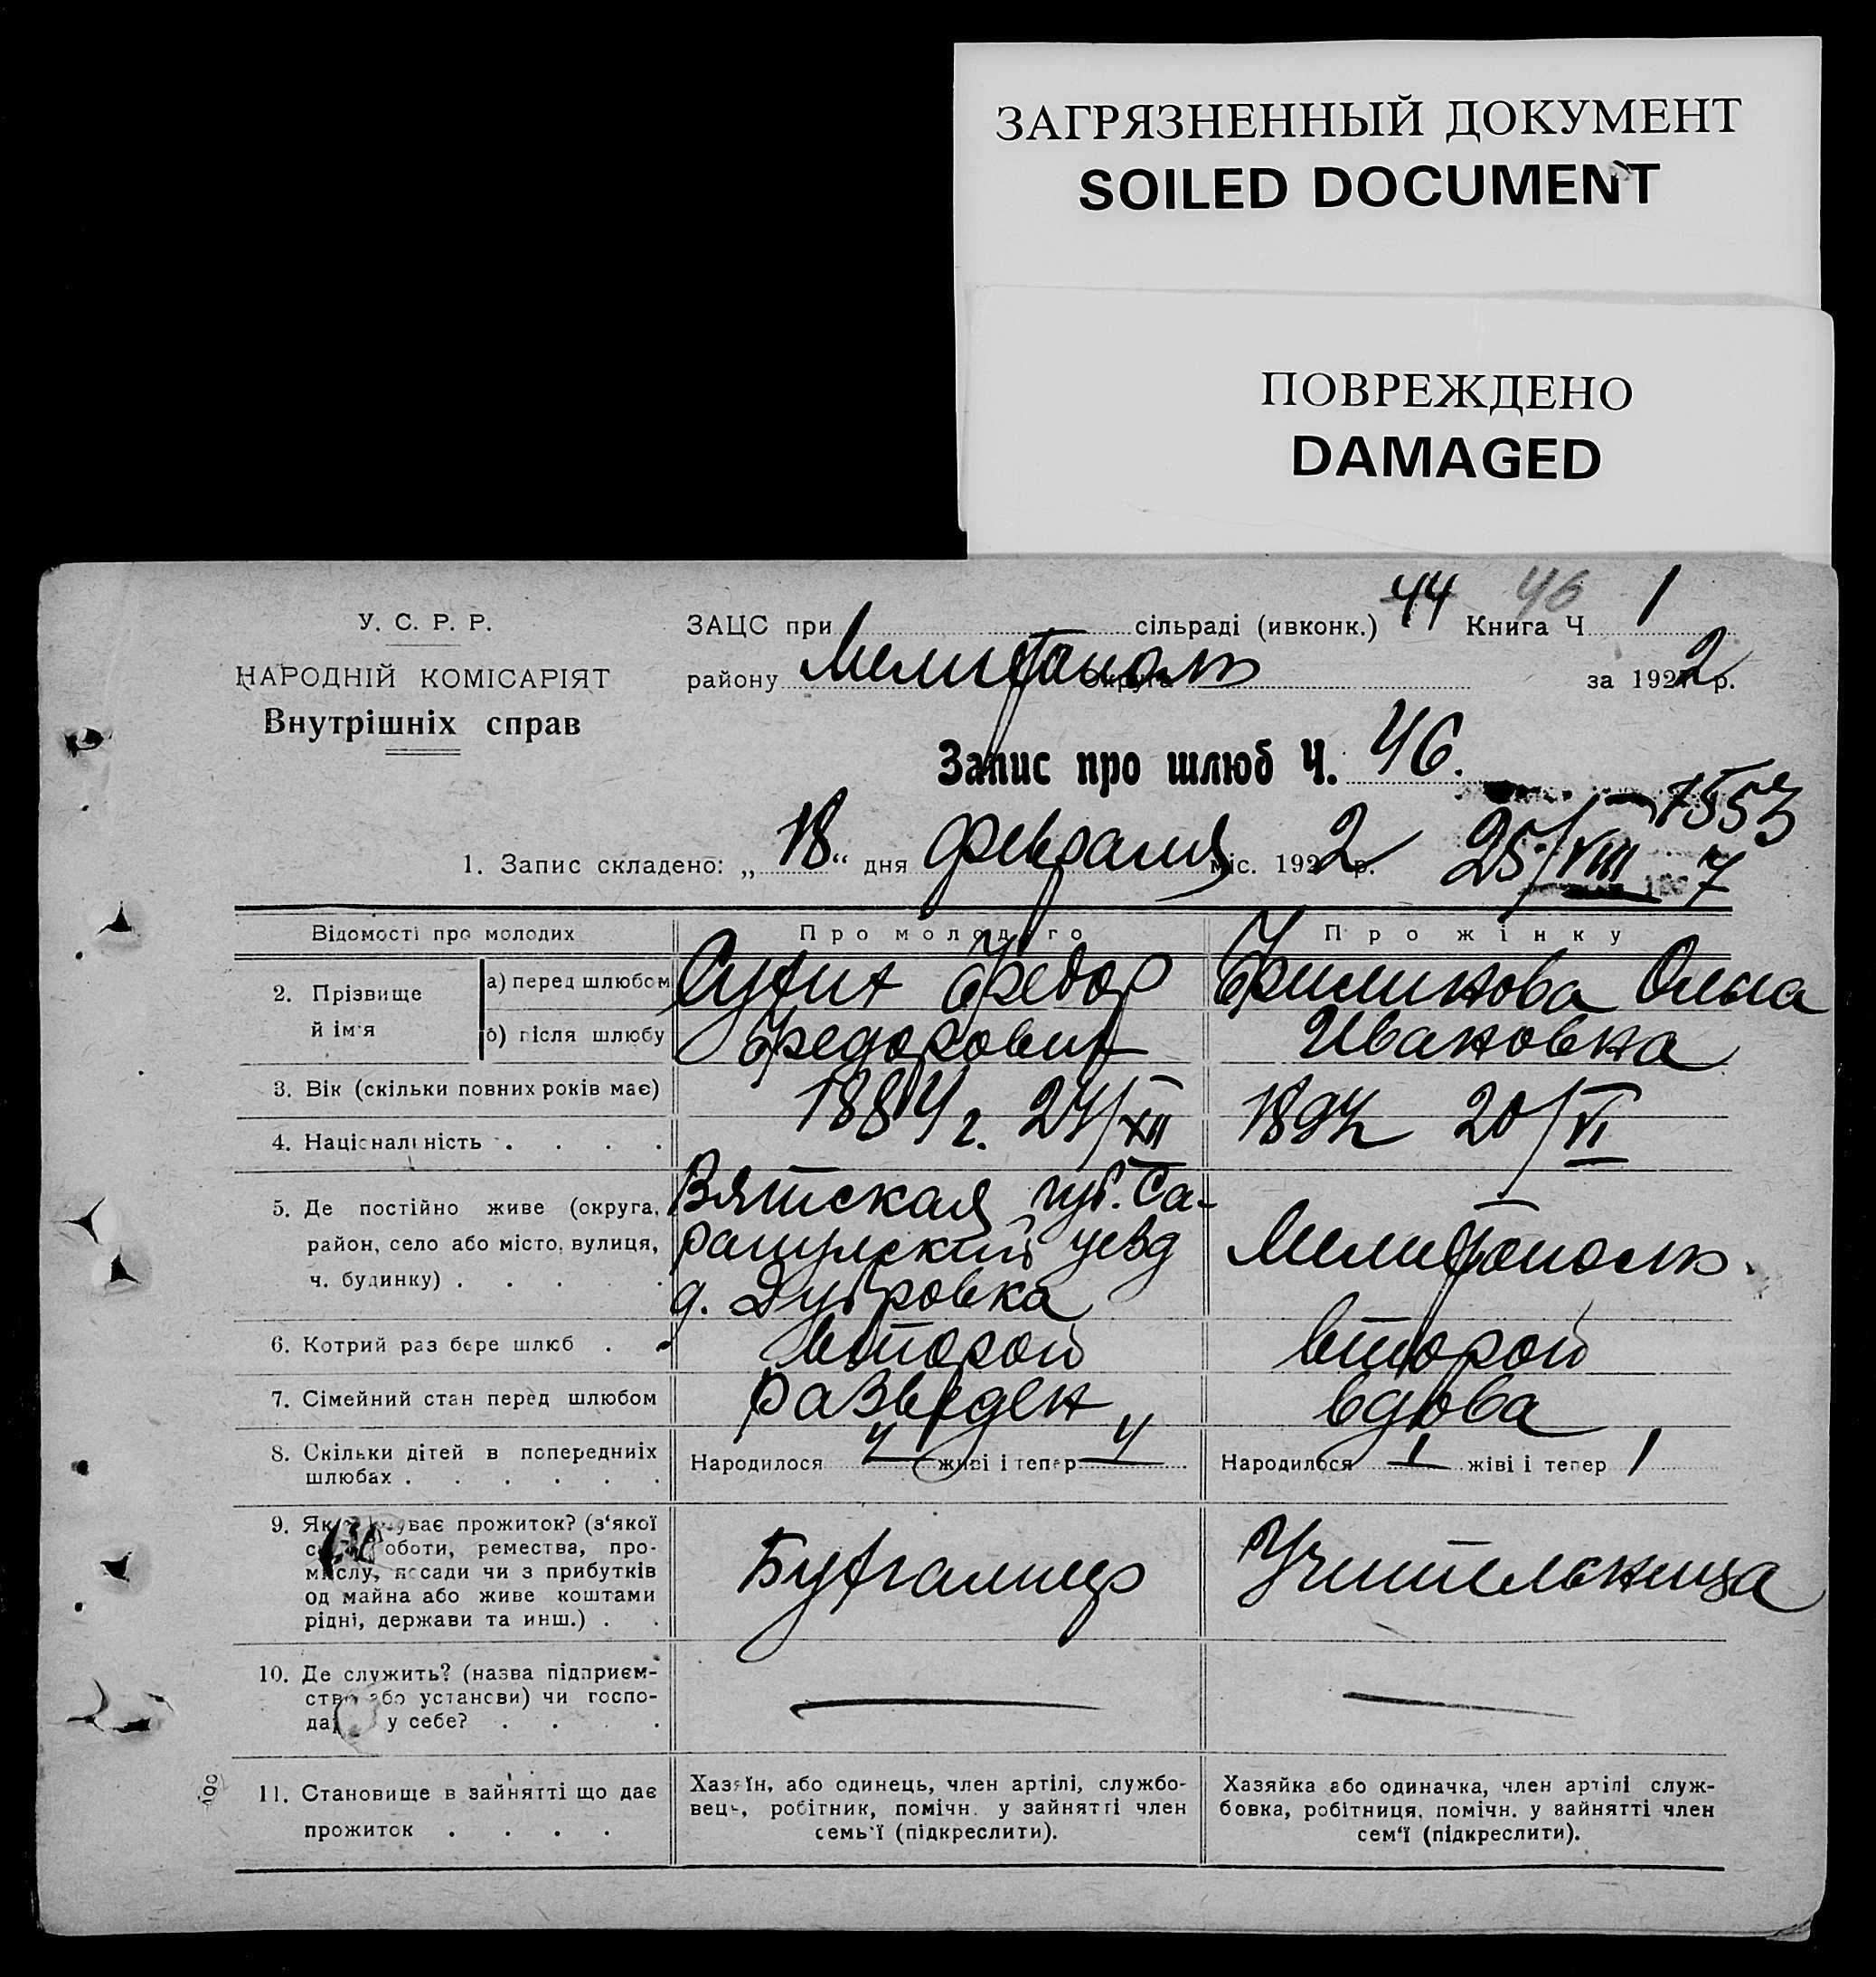 ЗАГРЯЗНЕННЫЙ ДОКУМЕНТ
SOILED DOCUMENT
ПОВРЕЖДЕНО
DAMAGED
У. С. Р. Р.
НАРОДНІЙ КОМІСАРІЯТ
Внутрішніх справ
ЗАЦС при сільраді (ивконк.) 44 46 Книга Ч 1
району Мелитополь округа за 1922 р.
Запис про шлюб Ч. 46.
7553
1. Запис складено: „18“ дня февраля міс. 1922 р. 25/VIII 7
Відомості про молодих Про молодого Про жінку
2. Прізвище й ім'я а) перед шлюбом Федор Ольга
б) після шлюбу Федорович Ивановна
3. Вік (скільки повних років має) 1884 г. 24/XII 20/VI
4. Національність . . . .
5. Де постійно живе (округа, Вятская губ. Са-
район, село або місто, вулиця, рапульский уезд Мелитополь.
ч. будинку) . . . . . д. Дубровка
6. Котрий раз бере шлюб . . второй второй
7. Сімейний стан перед шлюбом разведен вдова
8. Скільки дітей в попередниіх Народилося 4 живі і тепер 4 Народилося 1 жіві і тепер 1
шлюбах . . . . . .
9. Як прожиток? (з'якої
оботи, ремества, про-
мислу, посади чи з прибутків Бухгалтер Учительница
од майна або живе коштами
рідні, держави та инш.) . .
10. Де служить? (назва підприєм-
ства або установи) чи госпо-
дар у себе? . . . .
11. Становище в зайнятті що дає Хазяїн, або одинець, член артілі, службо- Хазяйка або одиначка, член артілі служ-
прожиток . . . . вець, робітник, помічн. у зайнятті член бовка, робітниця, помічн. у зайнятті член
семь'ї (підкреслити). сем'ї (підкреслити).